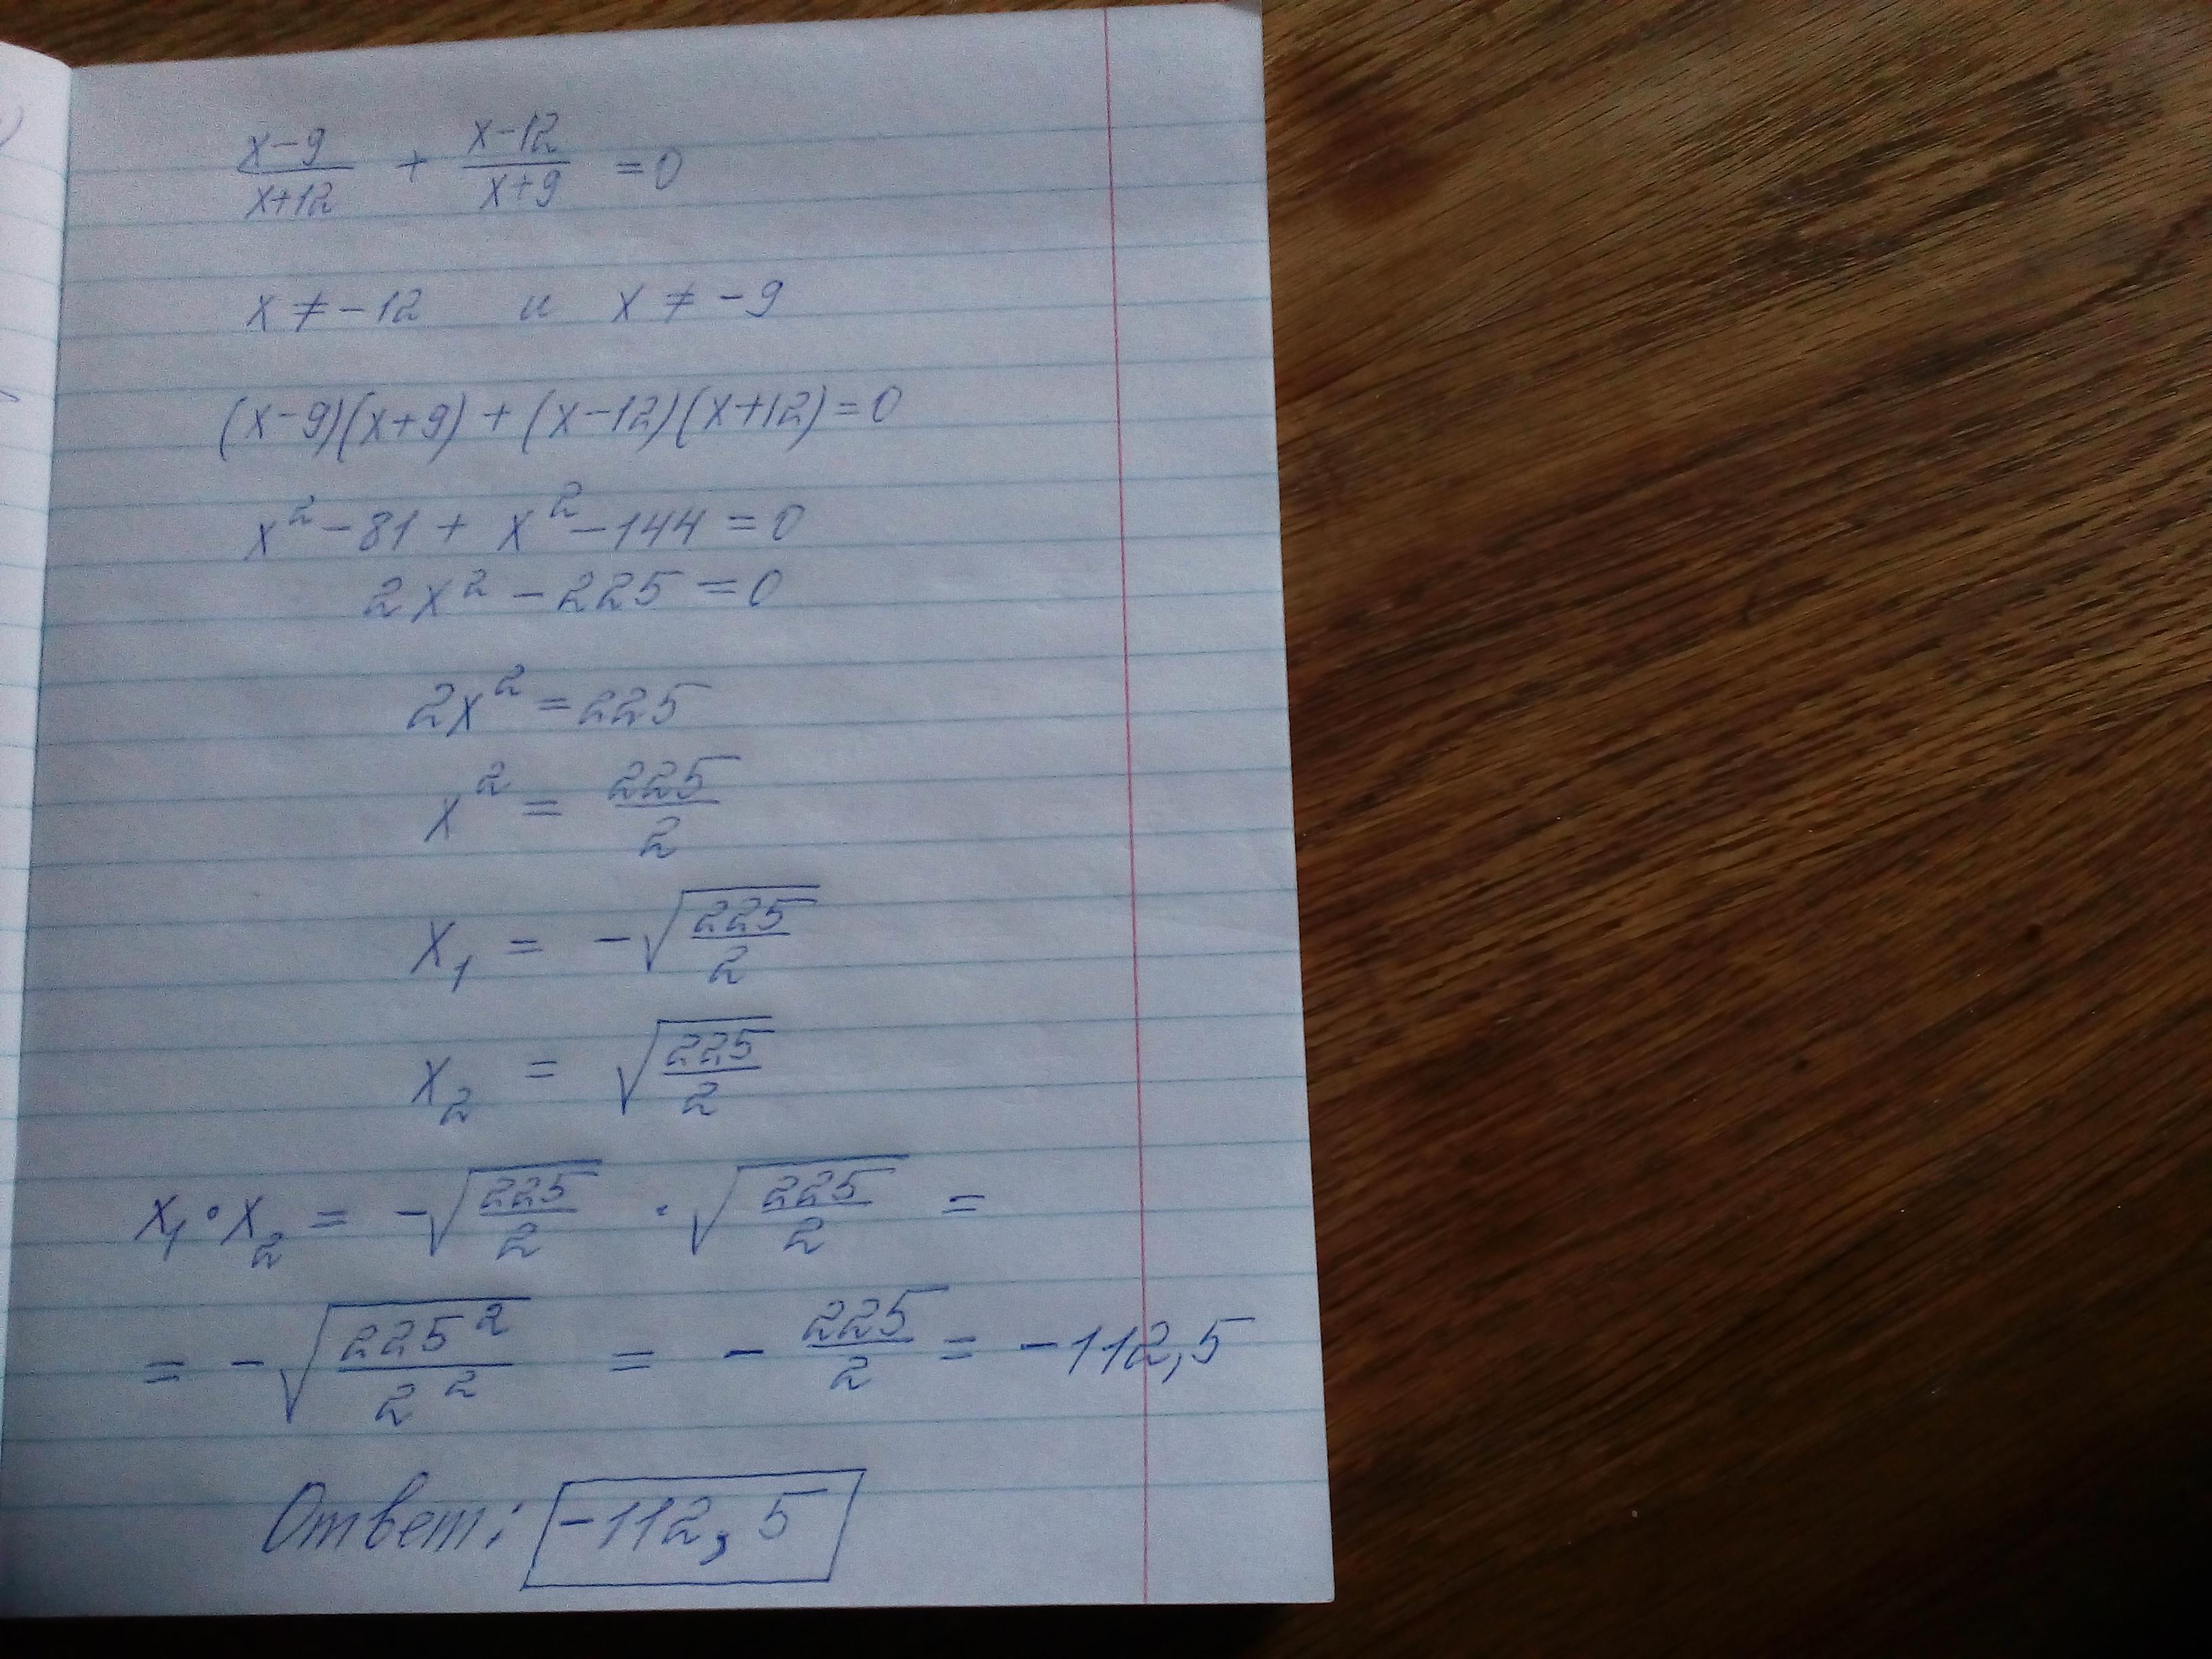 (x-9)/(x+12) + (x-12)/(x+9) = 0
x ≠ -12 и x ≠ -9
(x-9)(x+9) + (x-12)(x+12) = 0
x² - 81 + x² - 144 = 0
2x² - 225 = 0
2x² = 225
x² = 225/2
x₁ = -√(225/2)
x₂ = √(225/2)
x₁ · x₂ = -√(225/2) · √(225/2) =
= -√(225²/2²) = -225/2 = -112,5
Ответ: -112,5